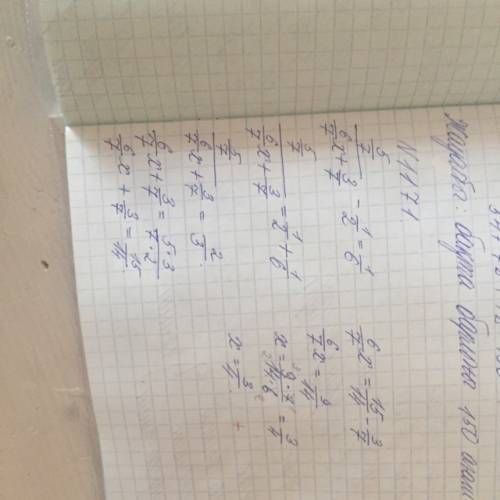 Жауабы: бақта барлығы 150
N 1171.
(5/7)/(6/7 x + 3/7) - 1/2 = 1/6
(5/7)/(6/7 x + 3/7) = 1/2 + 1/6
(5/7)/(6/7 x + 3/7) = 2/3
6/7 x + 3/7 = 5·3/7·2
6/7 x + 3/7 = 15/14
6/7 x = 15/14 - 3/7
6/7 x = 9/14
x = 9·7/14·6 = 3/4
x = 3/4